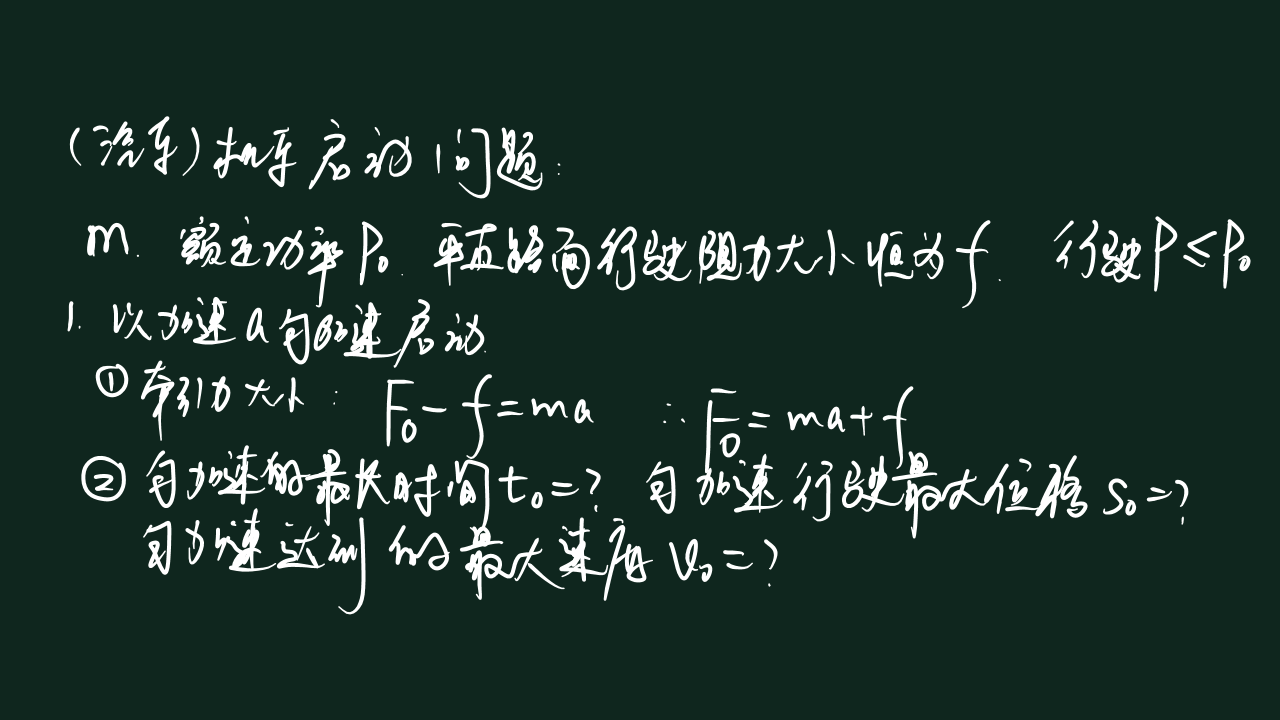 (汽车)机车启动问题:
m. 额定功率P₀. 平直路面行驶阻力大小恒为f. 行驶P≤P₀
1. 以加速a匀加速启动.
① 牵引力大小: F₀-f=ma ∴F₀=ma+f
② 匀加速的最长时间t₀=? 匀加速行驶最大位移s₀=?
匀加速达到的最大速度v₀=?